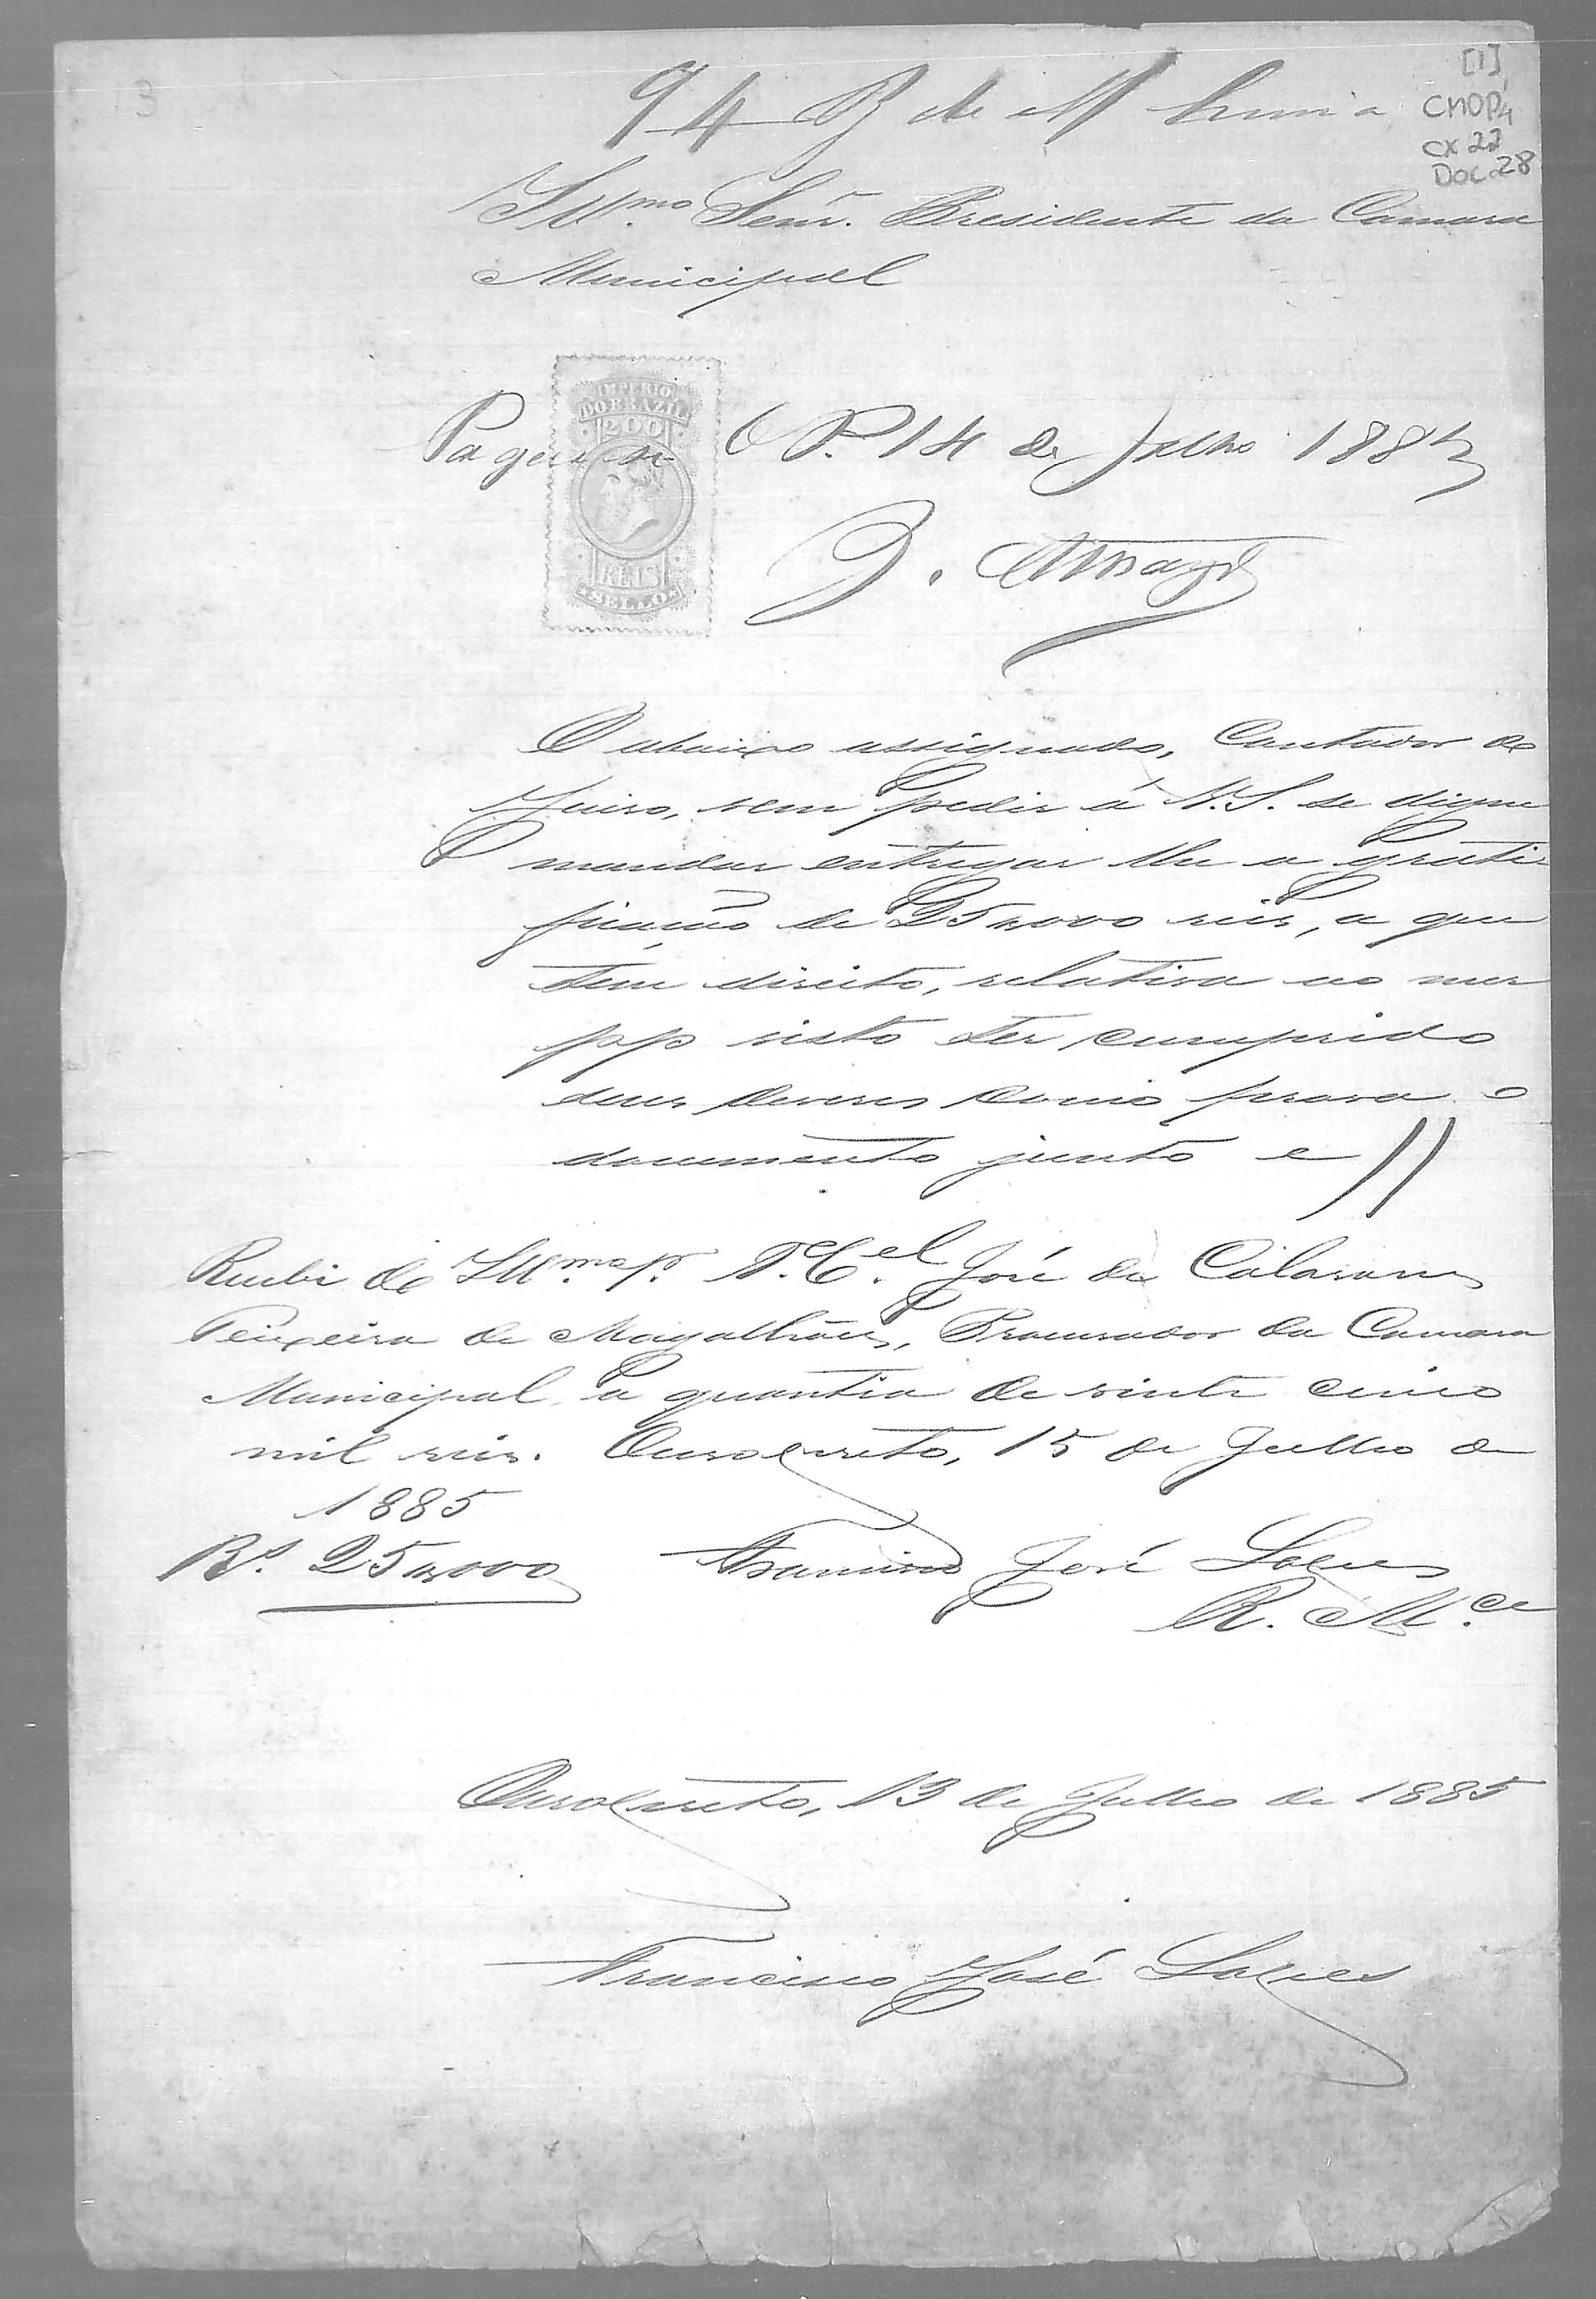 [1]
CMOP
cx 22
Doc 28
94 B de M
Illmo. Senr. Presidente da Camara
Municipal
IMPERIO
DO BRAZIL
200
REIS
SELLO
Pague-se O P. 14 de Julho 1885
O abaixo assignado, Contador do
Juizo, vem pedir á V.S. se digne
mandar entregar lhe a grati-
ficação de 25$000 reis, a que
tem direito, relativa ao mez
pp visto ter cumprido
seus deveres como prova o
documento junto e
Recebi do Illmo. Sr. Te. Cel. José de Calasans
Teixeira de Magalhães, Procurador da Camara
Municipal, a quantia de vinte cinco
mil reis. Ouro Preto, 15 de Julho de
1885
Rs. 25$000 Francisco José Lopes
R. Mce
Ouro Preto, 13 de Julho de 1885
Francisco José Lopes